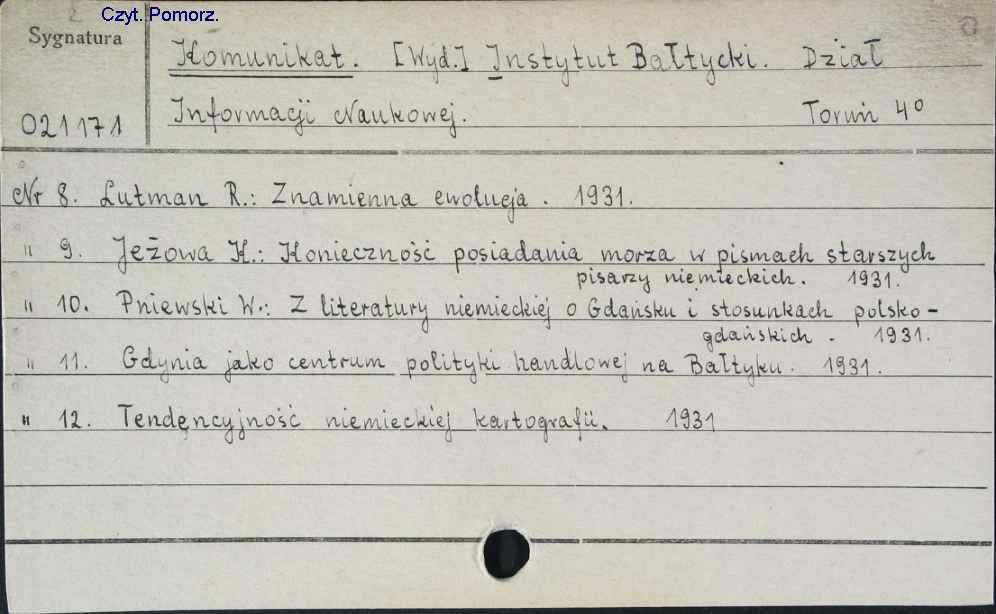 2 Czyt. Pomorz.
Sygnatura
Komunikat. [Wyd.] Instytut Bałtycki. Dział
Informacji Naukowej. Toruń 4°
021171
Nr 8. Lutman R.: Znamienna ewolucja. 1931.
" 9. Jeżowa K.: Konieczność posiadania morza w pismach starszych
pisarzy niemieckich. 1931.
" 10. Pniewski W.: Z literatury niemieckiej o Gdańsku i stosunkach polsko-
gdańskich. 1931.
" 11. Gdynia jako centrum polityki handlowej na Bałtyku. 1931.
" 12. Tendencyjność niemieckiej kartografii. 1931